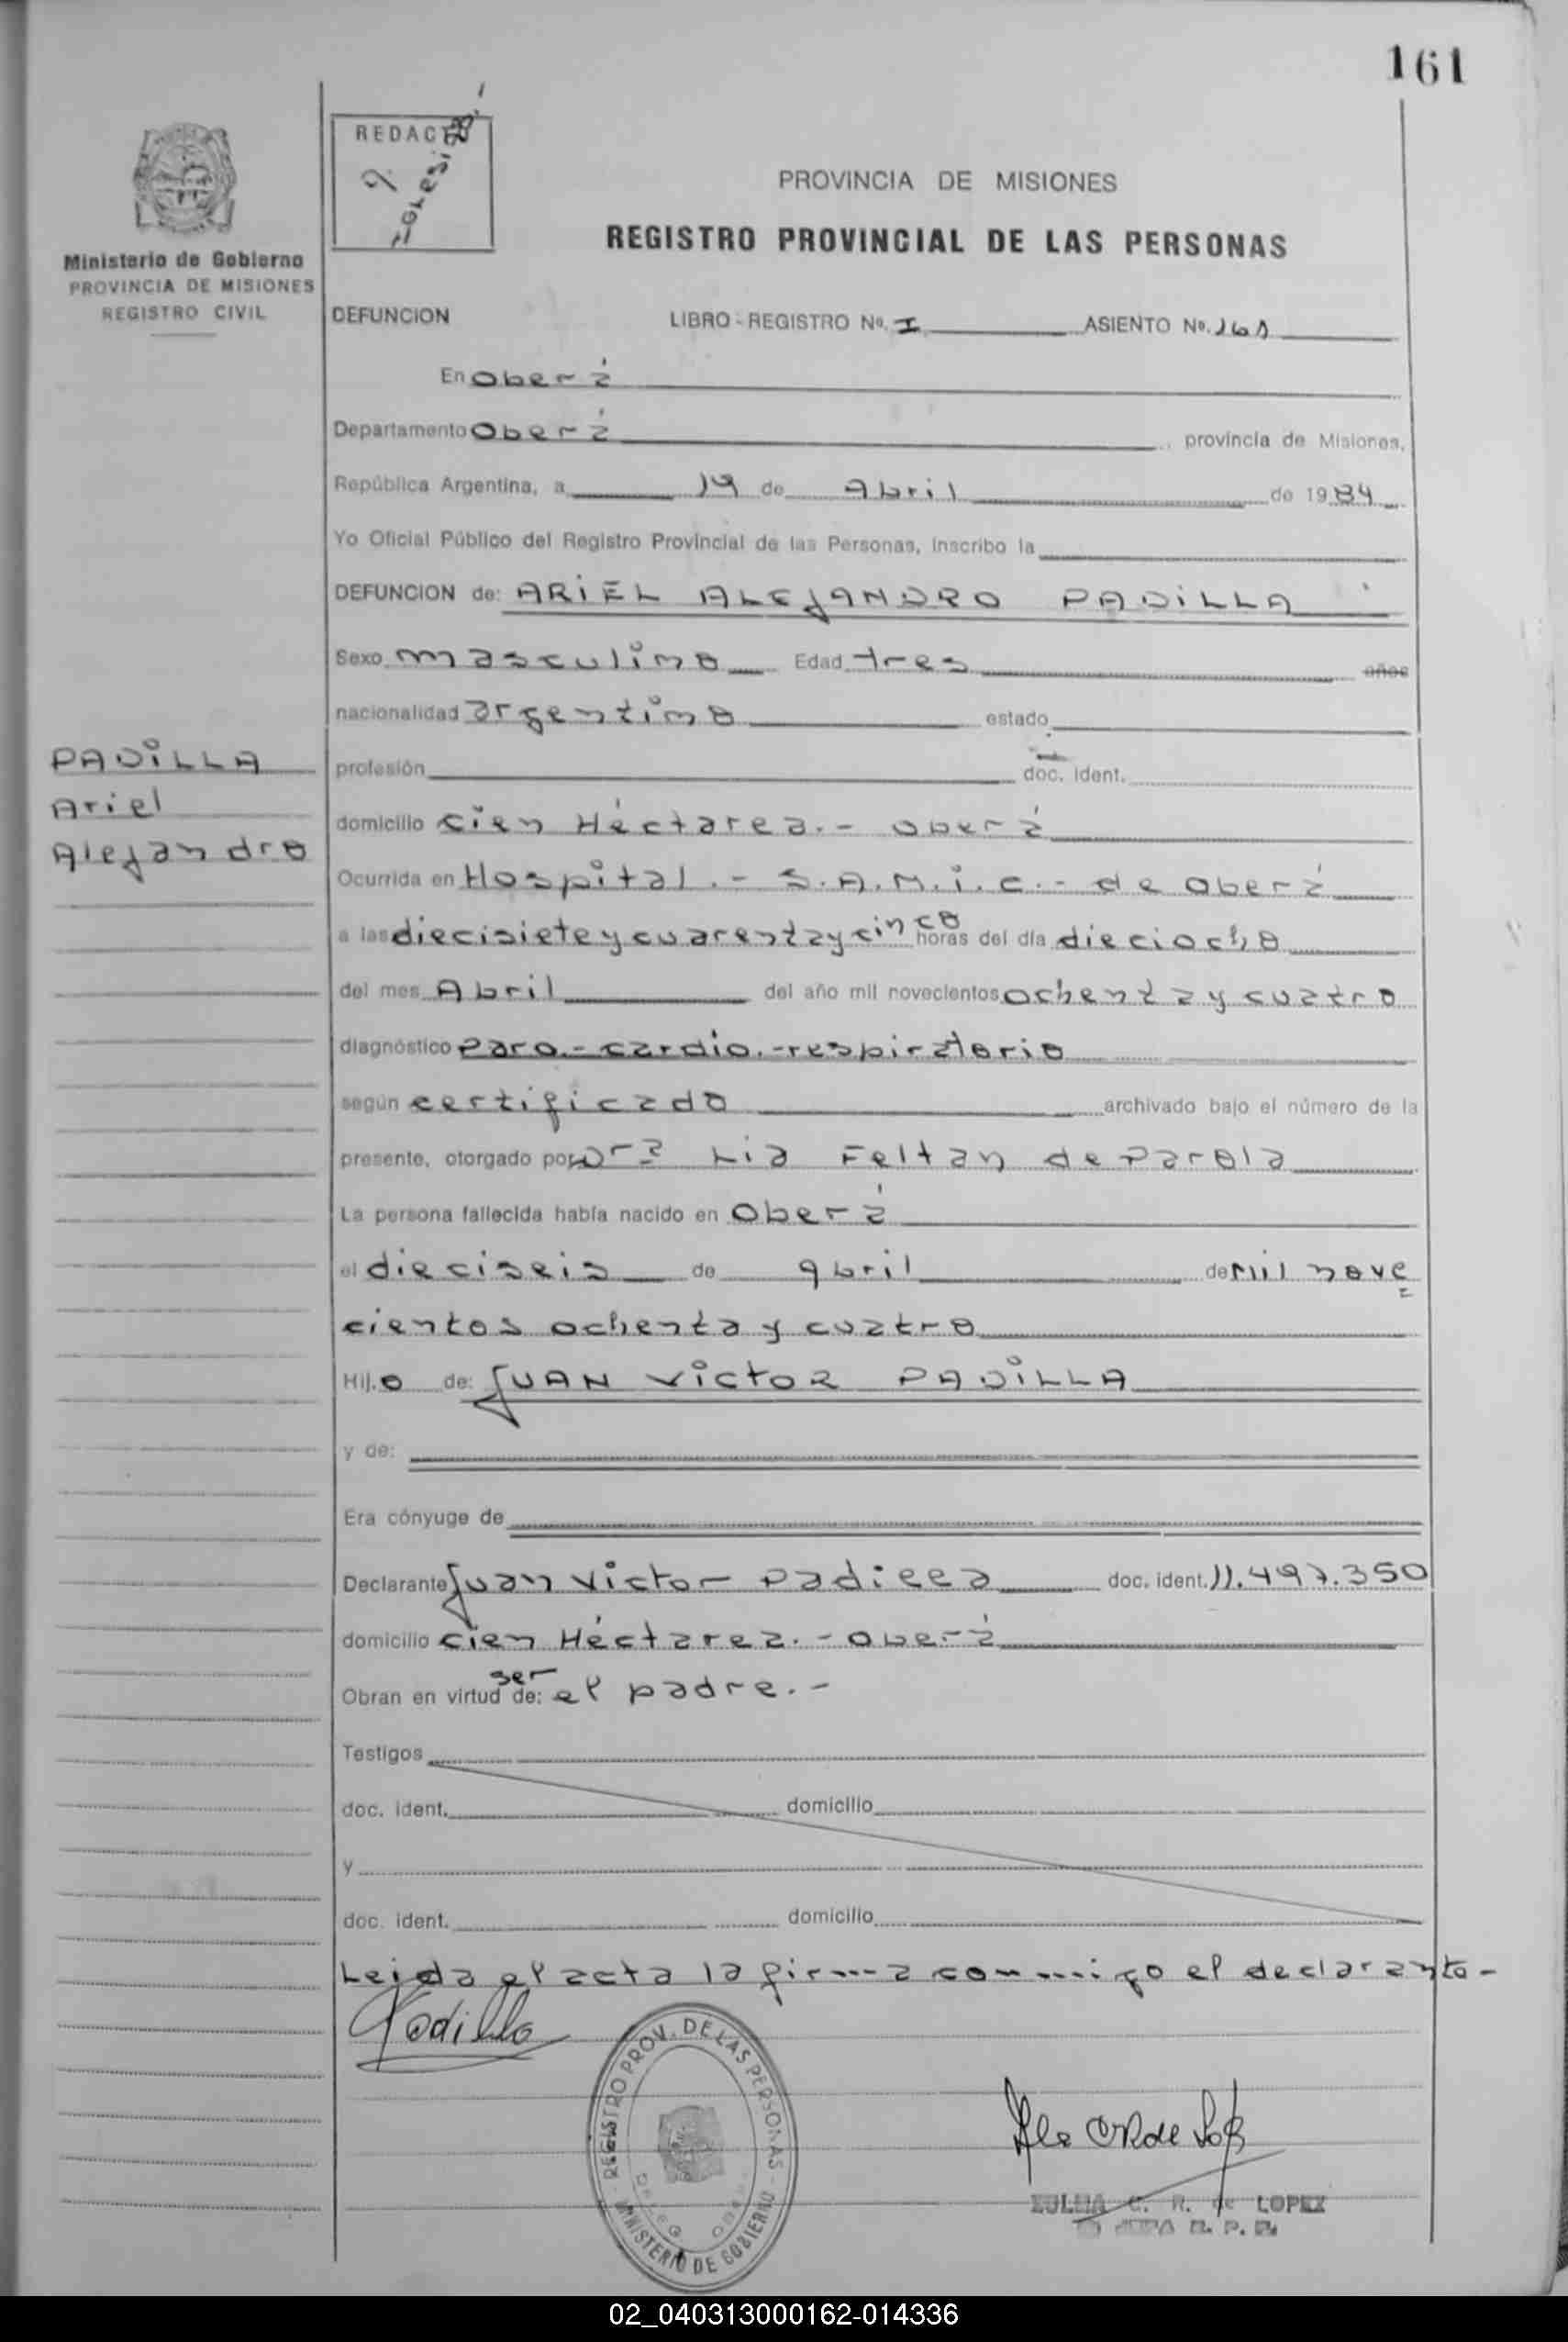 161
REDACTO
Iglesias
PROVINCIA DE MISIONES
REGISTRO PROVINCIAL DE LAS PERSONAS
Ministerio de Gobierno
PROVINCIA DE MISIONES
REGISTRO CIVIL
DEFUNCION LIBRO - REGISTRO Nº. I ASIENTO Nº. 161
En Oberá
Departamento Oberá, provincia de Misiones,
República Argentina, a 19 de Abril de 1984
Yo Oficial Público del Registro Provincial de las Personas, inscribo la
DEFUNCION de: ARiEL ALEJANDRO PADiLLA
Sexo masculino Edad tres años
nacionalidad argentino estado
PADiLLA
Ariel
Alejandro
profesión doc. ident.
domicilio Cien Héctarea.- Oberá
Ocurrida en Hospital.- S.A.M.i.c.- de Oberá
a las diecisiete y cuarenta y cinco horas del día dieciocho
del mes Abril del año mil novecientos ochenta y cuatro
diagnóstico paro.- cardio.-respiratorio
según certificado archivado bajo el número de la
presente, otorgado por Dra Lia Feltan de Parola
La persona fallecida había nacido en Oberá
el dieciseis de abril de Mil nove
cientos ochenta y cuatro
Hij.o de: JUAN VicTOR PADiLLA
y de:
Era cónyuge de
Declarante Juan Victor Padilla doc. ident. 11.497.350
domicilio Cien Héctarea.- Oberá
Obran en virtud de: ser el padre.-
Testigos
doc. ident. domicilio
y
doc. ident. domicilio
Leida el acta la firma conmigo el declarante-
Padilla
REGISTRO PROV. DE LAS PERSONAS - MINISTERIO DE GOBIERNO
ZULMA C. R. de LOPEZ
02_040313000162-014336